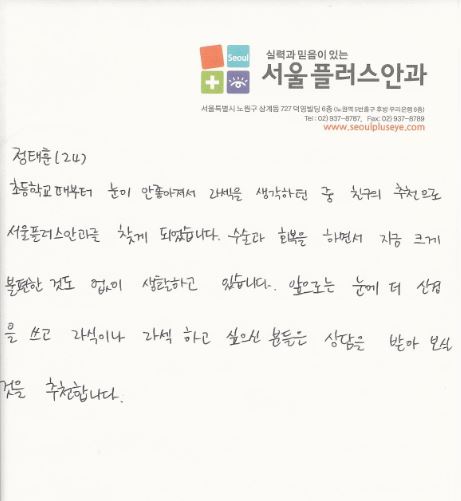 Seoul
실력과 믿음이 있는
서울플러스안과
서울특별시 노원구 상계동 727 덕영빌딩 6층 (노원역 5번출구 후방 우리은행 6층)
Tel : 02) 937-8767, Fax: 02) 937-8789
www.seoulpluseye.com
정태훈(24)
초등학교때부터 눈이 안좋아져서 라섹을 생각하던 중 친구의 추천으로
서울플러스안과를 찾게 되었습니다. 수술과 회복을 하면서 지금 크게
불편한 것도 없이 생활하고 있습니다. 앞으로는 눈에 더 신경
을 쓰고 라식이나 라섹 하고 싶으신 분들은 상담을 받아 보실
것을 추천합니다.